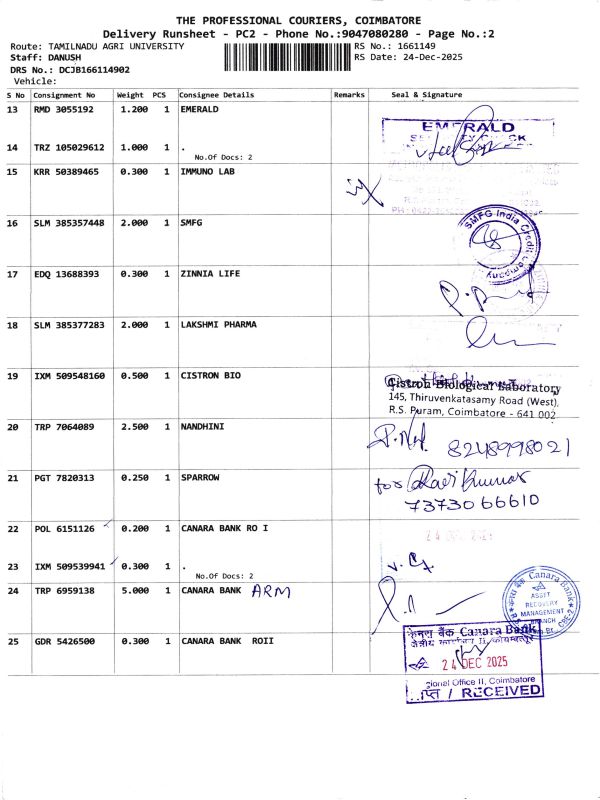 THE PROFESSIONAL COURIERS, COIMBATORE
Delivery Runsheet - PC2 - Phone No.:9047080280 - Page No.:2
Route: TAMILNADU AGRI UNIVERSITY RS No.: 1661149
Staff: DANUSH RS Date: 24-Dec-2025
DRS No.: DCJB166114902
Vehicle:
S No Consignment No Weight PCS Consignee Details Remarks Seal & Signature
13 RMD 3055192 1.200 1 EMERALD
EMERALD
14 TRZ 105029612 1.000 1 .
No.Of Docs: 2
15 KRR 50389465 0.300 1 IMMUNO LAB
16 SLM 385357448 2.000 1 SMFG
SMFG India Credit Company
17 EDQ 13688393 0.300 1 ZINNIA LIFE
18 SLM 385377283 2.000 1 LAKSHMI PHARMA
19 IXM 509548160 0.500 1 CISTRON BIO
Cistron Biological Laboratory
145, Thiruvenkatasamy Road (West),
R.S. Puram, Coimbatore - 641 002
20 TRP 7064089 2.500 1 NANDHINI
8248998021
21 PGT 7820313 0.250 1 SPARROW
for Ravi Kumar
73730 66610
22 POL 6151126 0.200 1 CANARA BANK RO I
23 IXM 509539941 0.300 1 .
No.Of Docs: 2
24 TRP 6959138 5.000 1 CANARA BANK ARM
Canara Bank
ASSET
RECOVERY
MANAGEMENT
BRANCH
25 GDR 5426500 0.300 1 CANARA BANK ROII
केनरा बैंक Canara Bank
24 DEC 2025
Office II, Coimbatore
/ RECEIVED